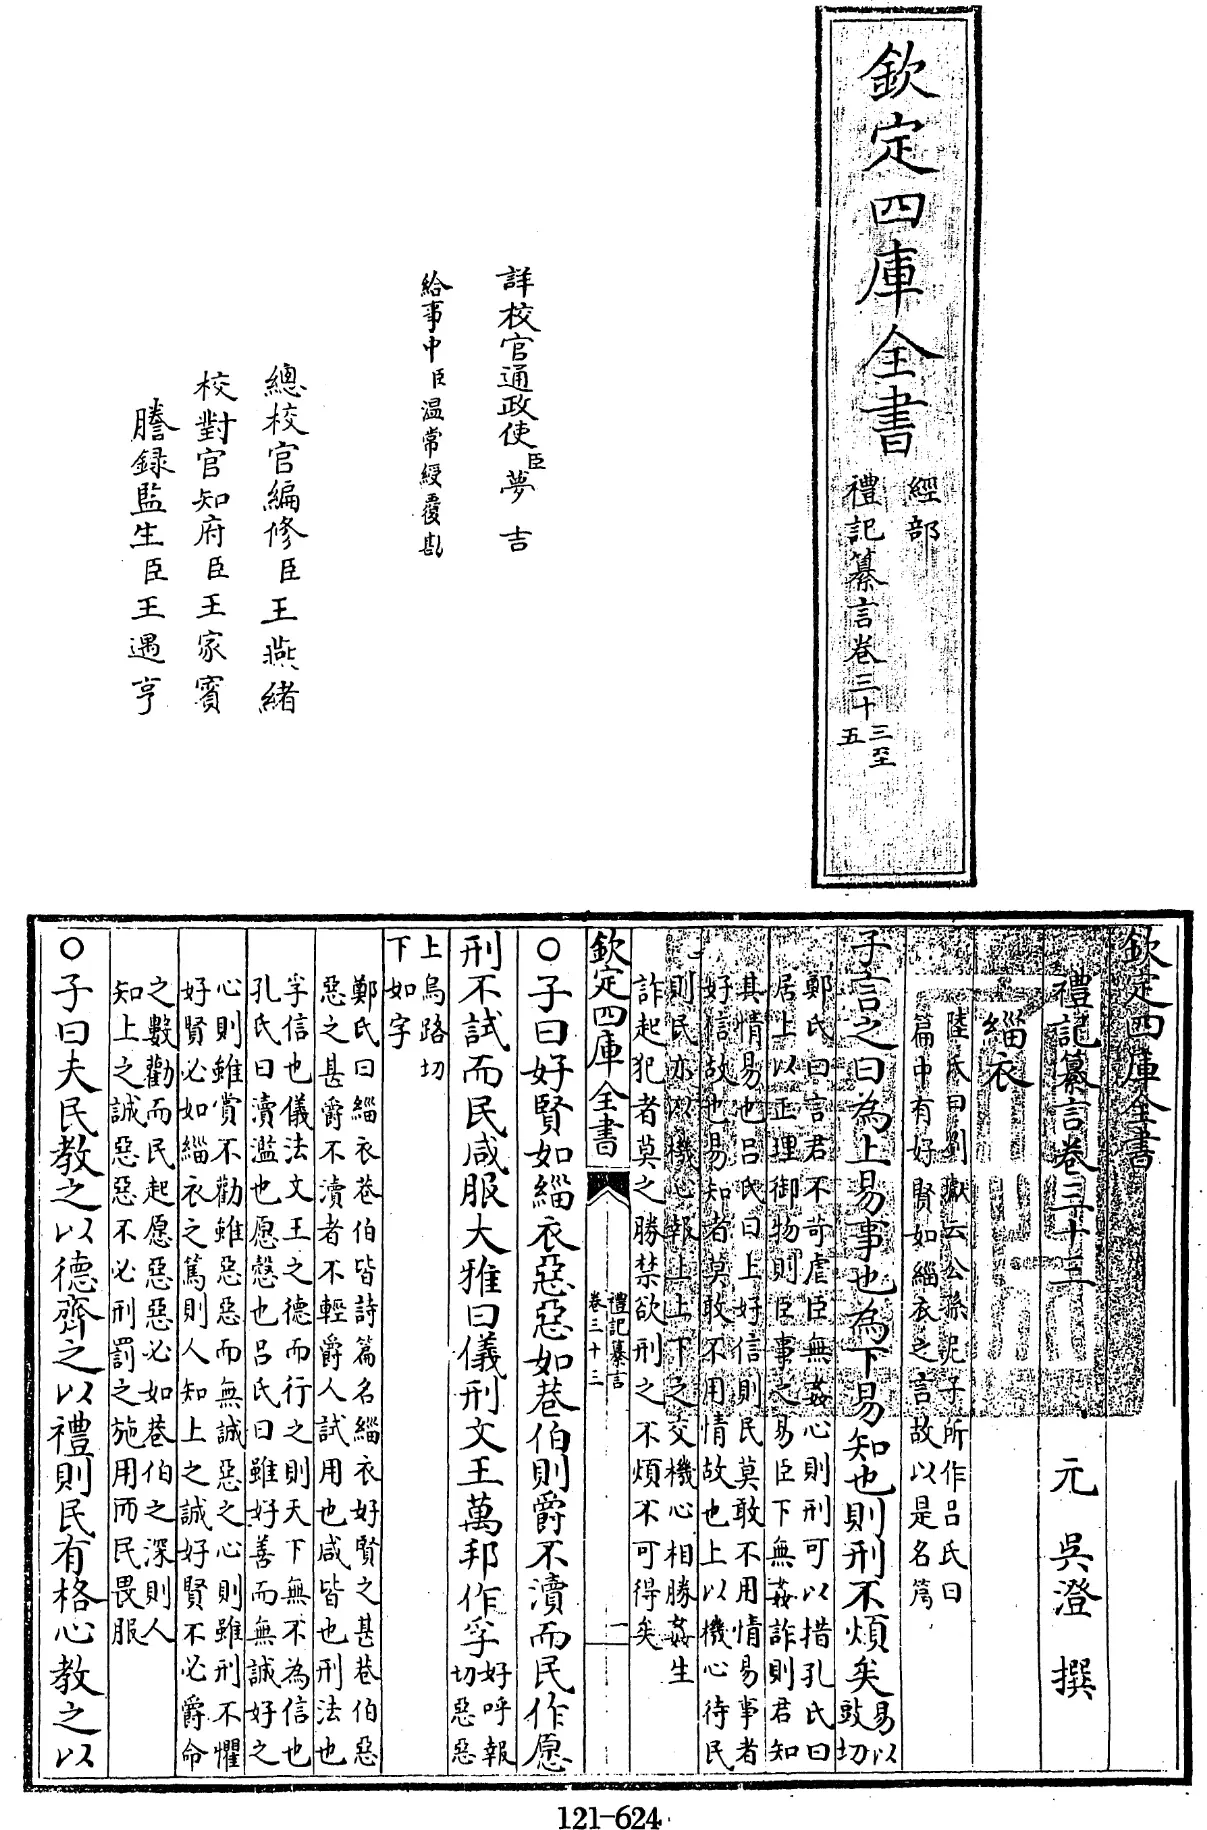 欽定四庫全書
經部
禮記纂言卷三十三至
五
詳校官通政使臣夢吉
給事中臣温常綬覆勘
總校官編修臣王燕緒
校對官知府臣王家賓
謄録監生臣王遇亨
欽定四庫全書
禮記纂言卷三十三
元 吳澄 撰
緇衣
陸氏曰劉瓛云公孫尼子所作吕氏曰
篇中有好賢如緇衣之言故以是名篇
子言之曰為上易事也為下易知也則刑不煩矣易以
豉切
鄭氏曰言君不苛虐臣無姦心則刑可以措孔氏曰
居上以正理御物則臣事之易臣下無姦詐則君知
其情易也吕氏曰上好信則民莫敢不用情易事者
好信故也易知者莫敢不用情故也上以機心待民
則民亦以機心報上上下之交機心相勝姦生
詐起犯者莫之勝禁欲刑之不煩不可得矣
欽定四庫全書
禮記纂言
卷三十三
一
○子曰好賢如緇衣惡惡如巷伯則爵不瀆而民作愿
刑不試而民咸服大雅曰儀刑文王萬邦作孚好呼報
切惡惡
上烏路切
下如字
鄭氏曰緇衣巷伯皆詩篇名緇衣好賢之甚巷伯惡
惡之甚爵不瀆者不輕爵人試用也咸皆也刑法也
孚信也儀法文王之德而行之則天下無不為信也
孔氏曰瀆濫也愿慤也吕氏曰雖好善而無誠好之
心則雖賞不勸雖惡惡而無誠惡之心則雖刑不懼
好賢必如緇衣之篤則人知上之誠好賢不必爵命
之數勸而民起愿惡惡必如巷伯之深則人
知上之誠惡惡不必刑罰之施用而民畏服
○子曰夫民教之以德齊之以禮則民有格心教之以
121-624